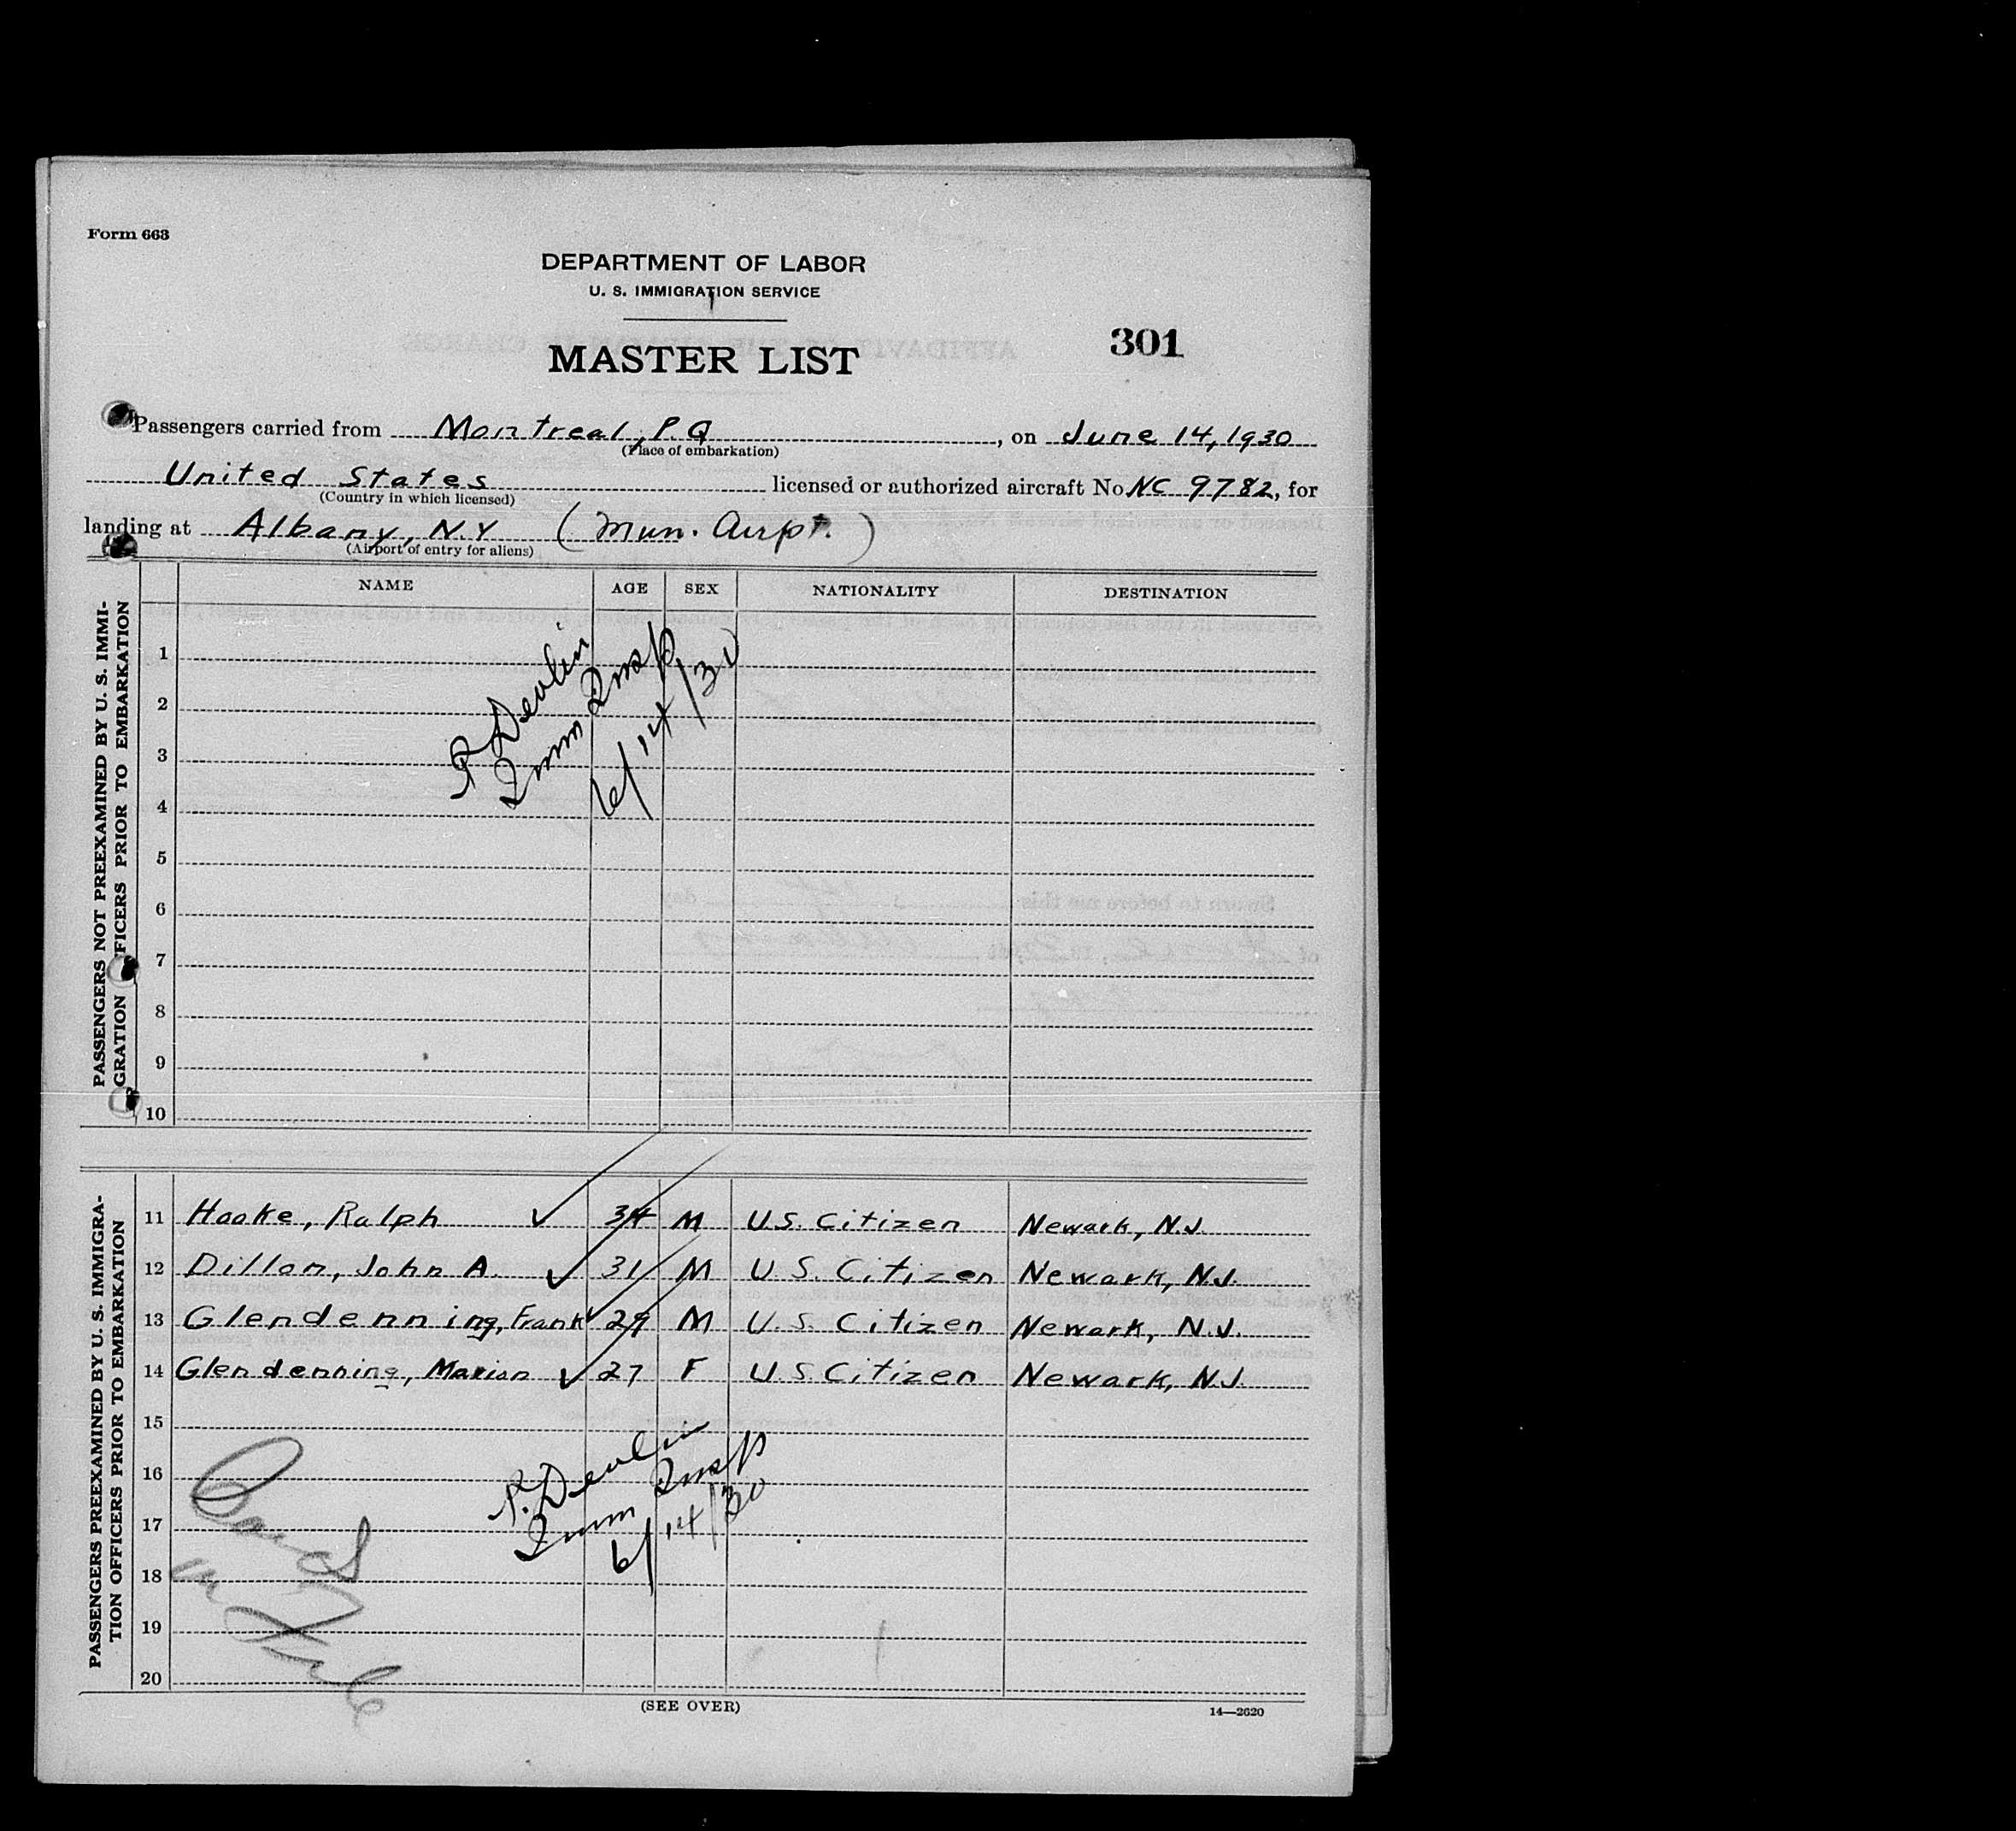 Form 663
DEPARTMENT OF LABOR
U. S. IMMIGRATION SERVICE
MASTER LIST
301
Passengers carried from Montreal, P.Q , on June 14, 1930
(Place of embarkation)
United States licensed or authorized aircraft No. NC 9782, for
(Country in which licensed)
landing at Albany, N.Y (Mun. Airpt.)
(Airport of entry for aliens)
PASSENGERS NOT PREEXAMINED BY U. S. IMMI-
GRATION OFFICERS PRIOR TO EMBARKATION
NAME AGE SEX NATIONALITY DESTINATION
1
2
3
4
5
6
7
8
9
10
P Devlin
Imm Insp
6/14/30
PASSENGERS PREEXAMINED BY U. S. IMMIGRA-
TION OFFICERS PRIOR TO EMBARKATION
11 Hooke, Ralph ✓ 34 M U.S. Citizen Newark, N.J.
12 Dillon, John A. ✓ 31 M U.S. Citizen Newark, N.J.
13 Glendenning, Frank ✓ 29 M U.S. Citizen Newark, N.J.
14 Glendenning, Marion ✓ 27 F U.S Citizen Newark, N.J.
15
16
17
18
19
20
P. Devlin
Imm Insp
6/14/30
(SEE OVER)
14—2620